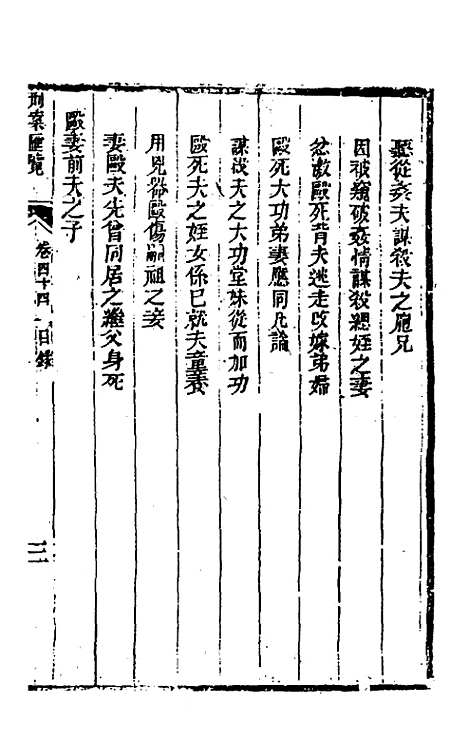 聽從姦夫謀殺夫之胞兄
因被窺破姦情謀殺緦姪之妻
忿激毆死背夫逃走改嫁弟婦
毆死大功弟妻應同凡論
謀殺夫之大功堂妹從而加功
毆死夫之姪女係已就夫童養
用兇器毆傷嗣祖之妾
妻毆夫先曾同居之繼父身死
毆妻前夫之子
刑案匯覽
卷四十四
目錄
三